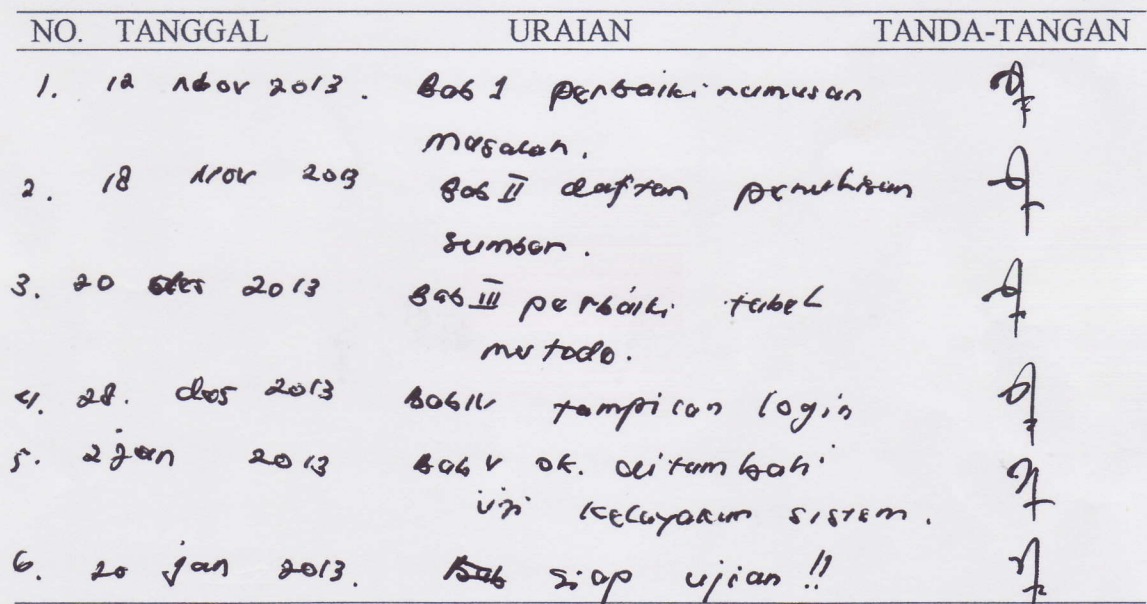 NO. TANGGAL URAIAN TANDA-TANGAN
1. 12 Nov 2013. Bab 1 perbaiki rumusan
masalah.
2. 18 Nov 2013 Bab II daftar penulisan
sumber.
3. 20 des 2013 Bab III perbaiki tabel
metode.
4. 28. des 2013 Bab IV tampilan login
5. 2 jan 2013 Bab V ok. ditambah
uji kelayakan sistem.
6. 20 jan 2013. Bab siap ujian !!